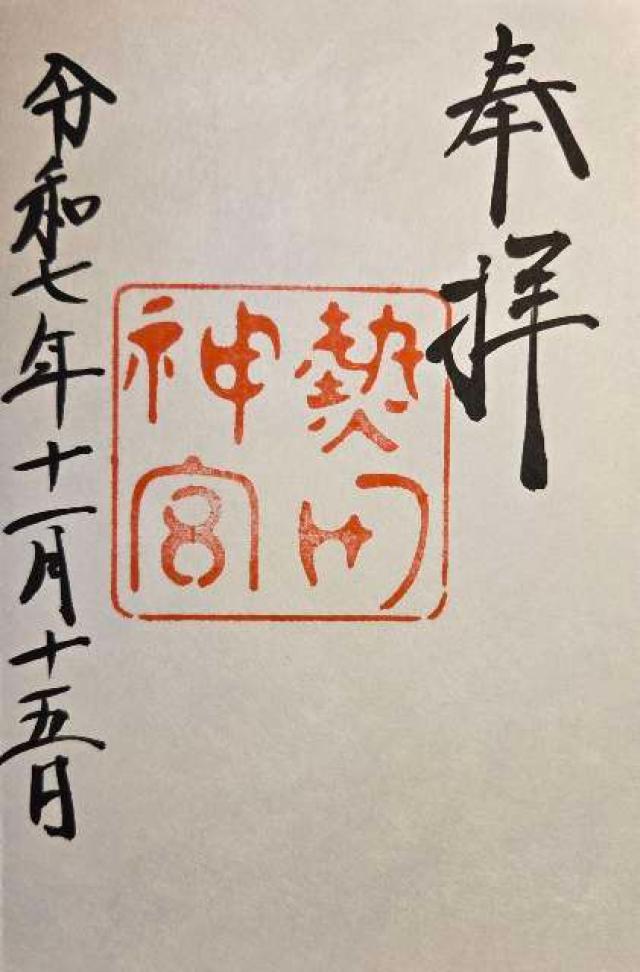 奉拝
熱田
神宮
令和七年十一月十五日